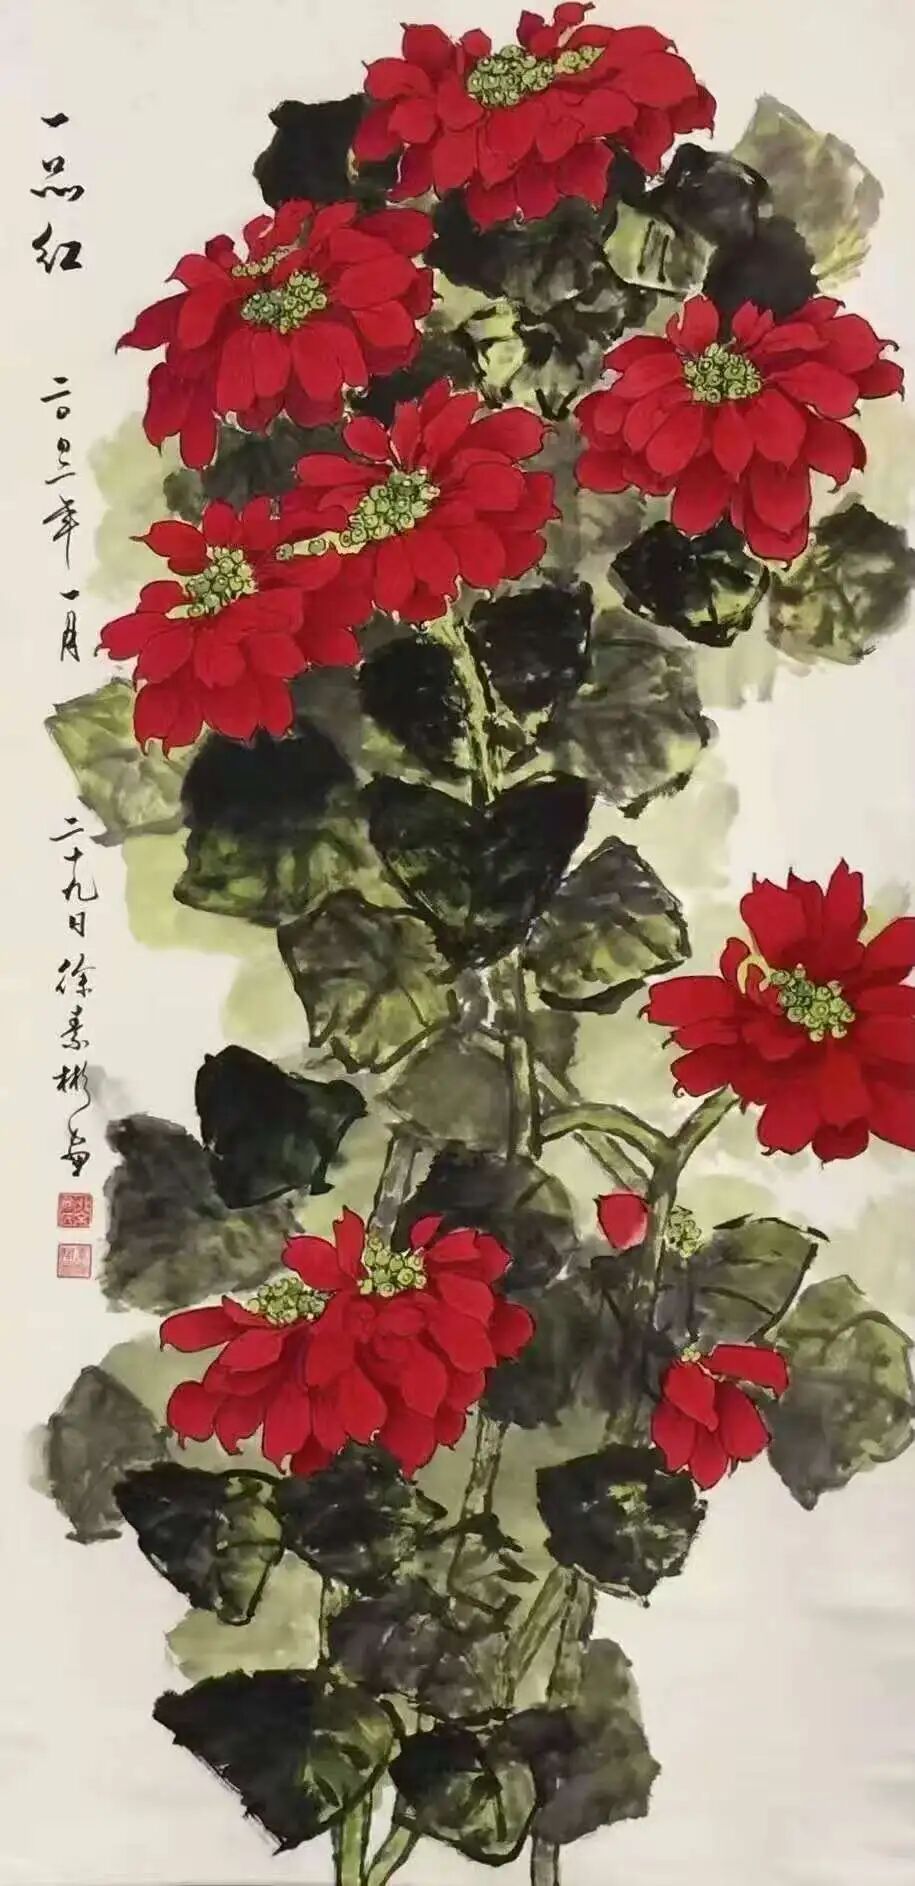 一品红 二〇二三年一月二十九日徐素彬画